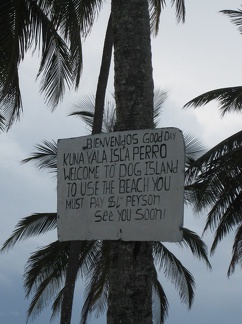 BIENVENIDOS GOOD DAY
KUNA YALA ISLA PERRO
WELCOME TO DOG ISLAND
TO USE THE BEACH YOU
MUST PAY $1- PEYSON
SEE YOU SOON!